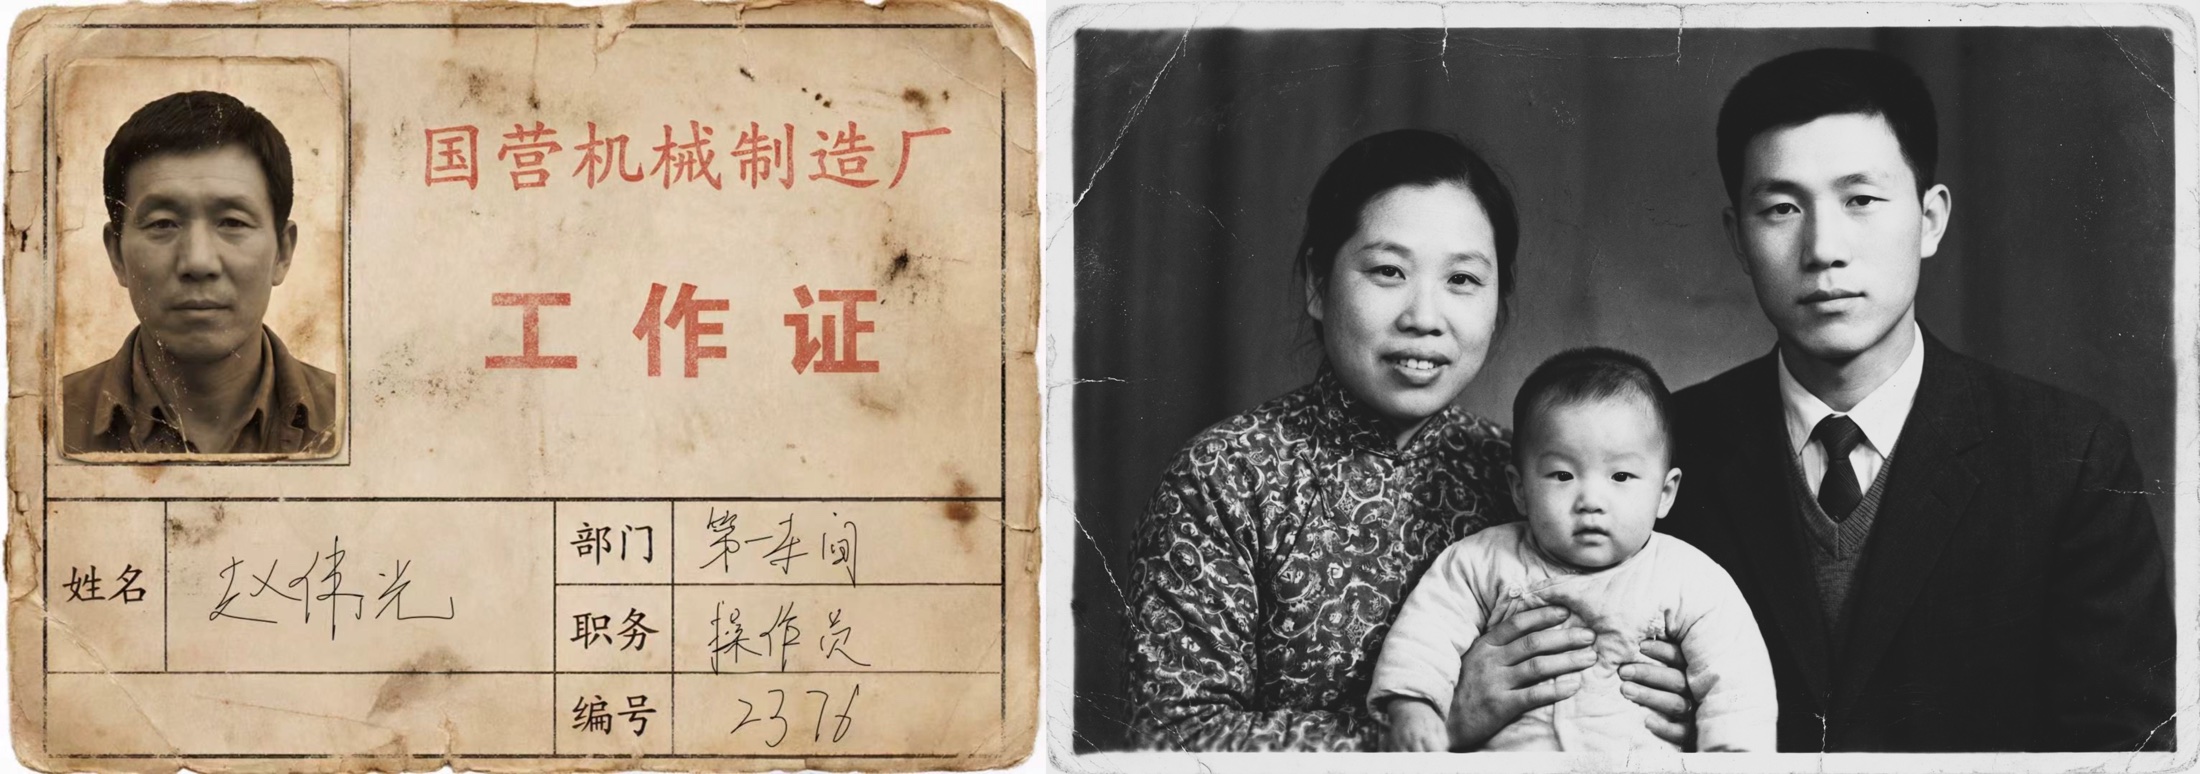 国营机械制造厂
工作证
姓名 赵伟光
部门 第一车间
职务 操作员
编号 2376